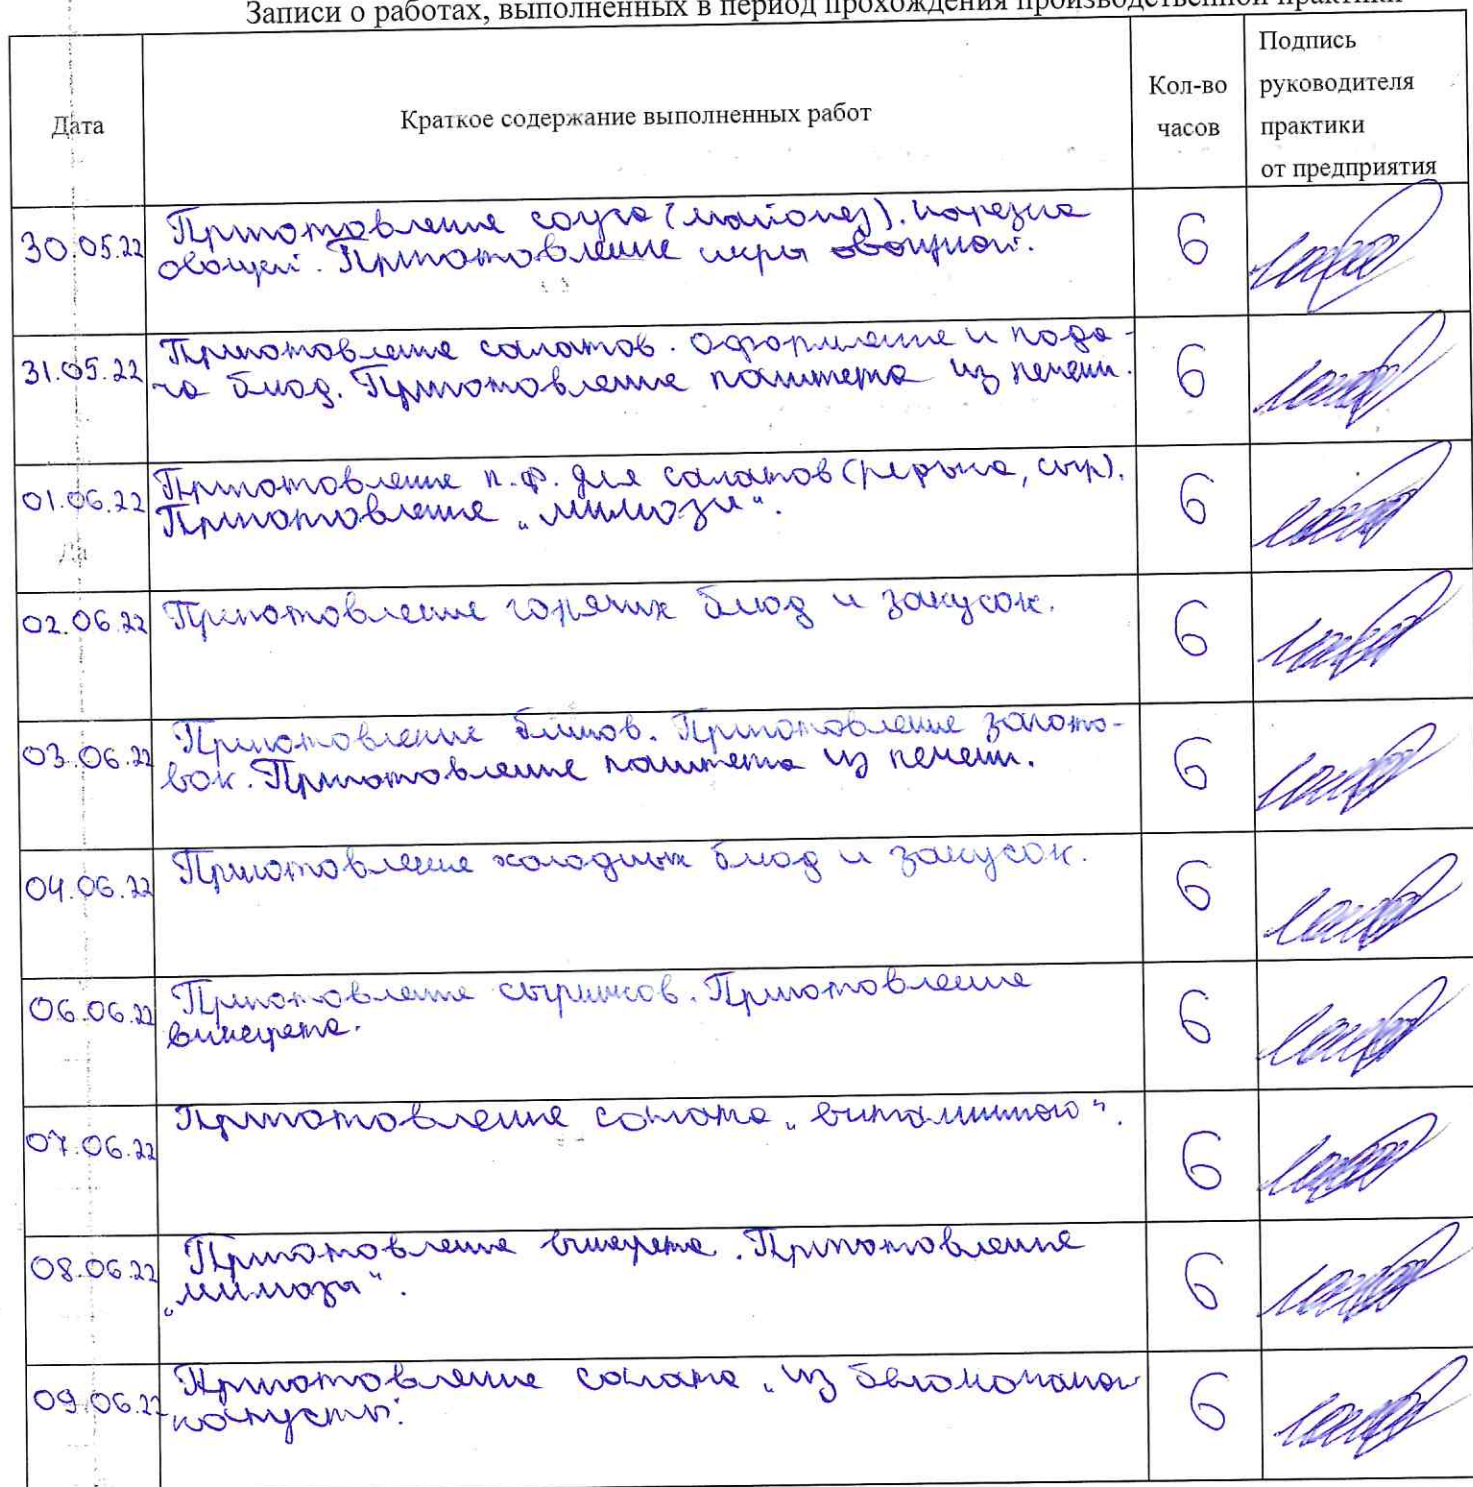 Записи о работах, выполненных в период прохождения производственной практики
Дата
Краткое содержание выполненных работ
Кол-во
часов
Подпись
руководителя
практики
от предприятия
30.05.22
Приготовление соуса (майонез). Нарезка
овощей. Приготовление икры овощной.
6
31.05.22
Приготовление салатов. Оформление и пода-
ча блюд. Приготовление паштета из печени.
6
01.06.22
Приготовление п.ф. для салатов (редька, сыр).
Приготовление „мимозы".
6
02.06.22
Приготовление горячих блюд и закусок.
6
03.06.22
Приготовление блинов. Приготовление загото-
вок. Приготовление паштета из печени.
6
04.06.22
Приготовление холодных блюд и закусок.
6
06.06.22
Приготовление сырников. Приготовление
винегрета.
6
07.06.22
Приготовление салата „витаминного".
6
08.06.22
Приготовление винегрета. Приготовление
„мимозы".
6
09.06.22
Приготовление салата „из белокочаной
капусты".
6